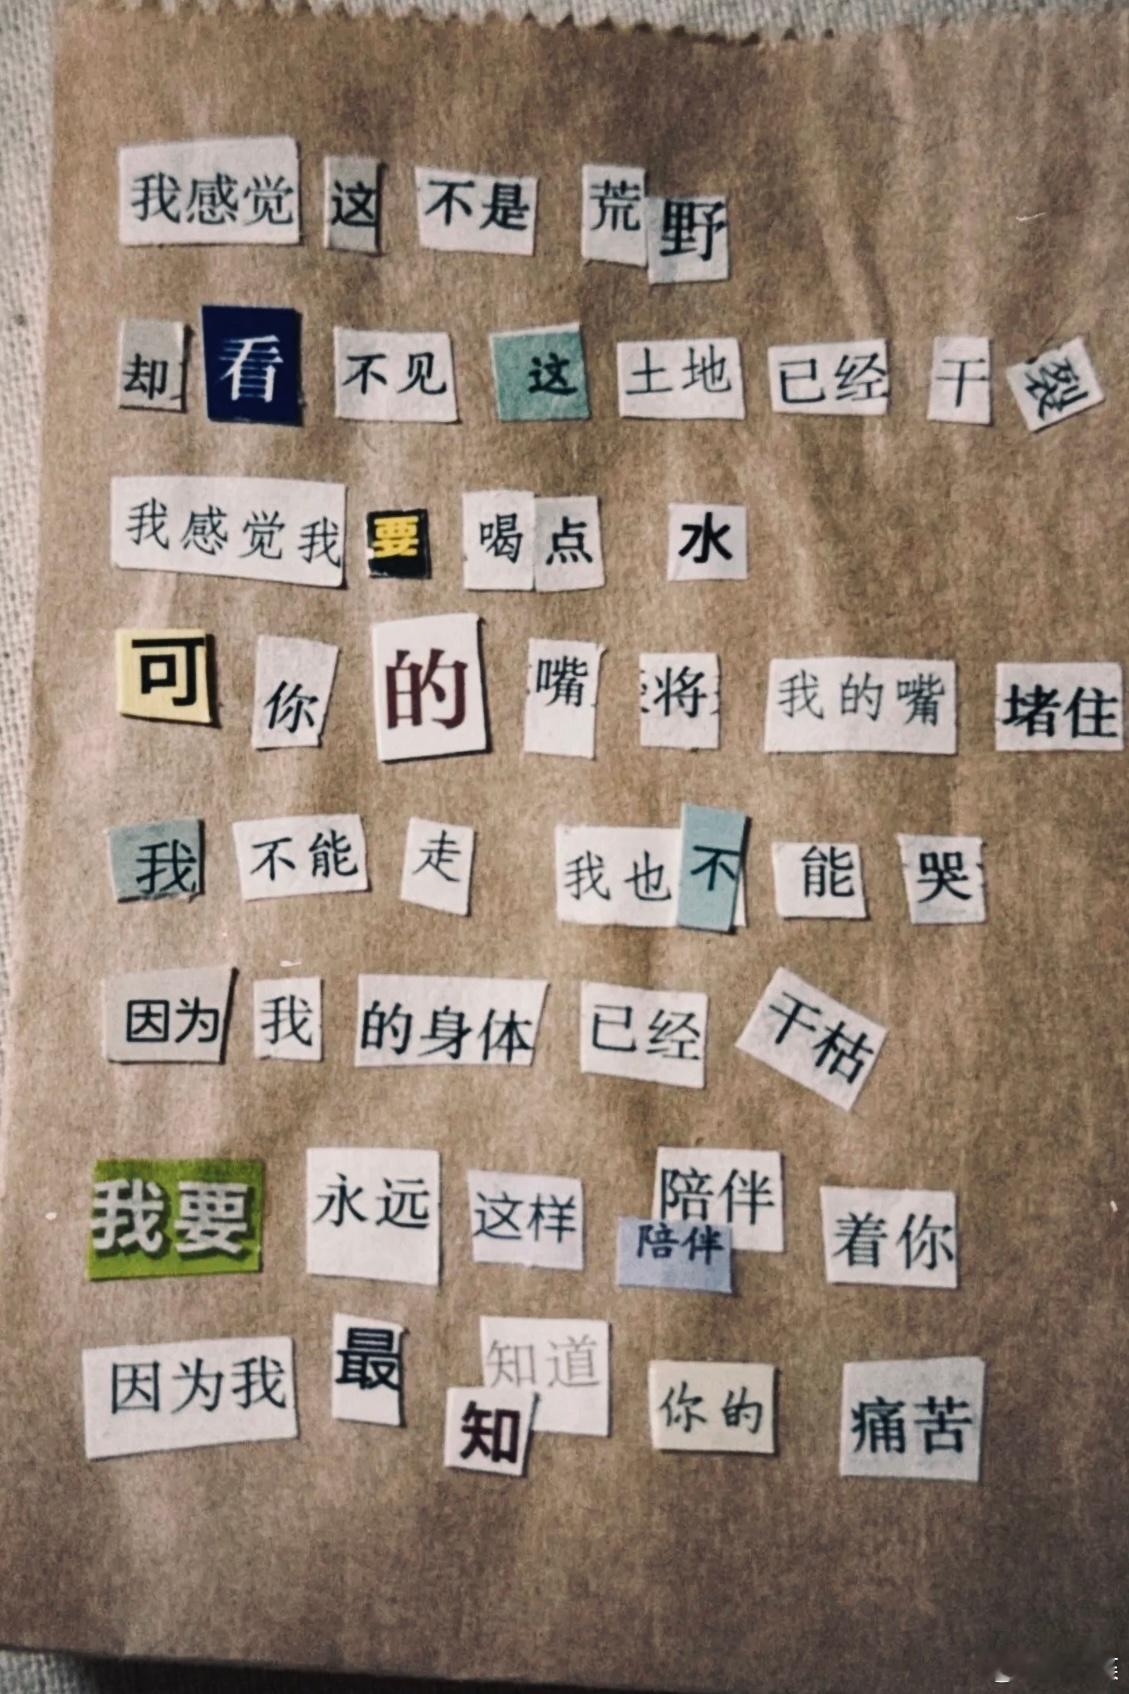 我感觉 这 不是 荒野
却 看 不见 这 土地 已经 干 裂
我感觉我 要 喝点 水
可 你 的 嘴 将 我的嘴 堵住
我 不能 走 我也不 能 哭
因为 我 的身体 已经 干枯
我要 永远 这样 陪伴 陪伴 着你
因为我 最 知道 知 你的 痛苦